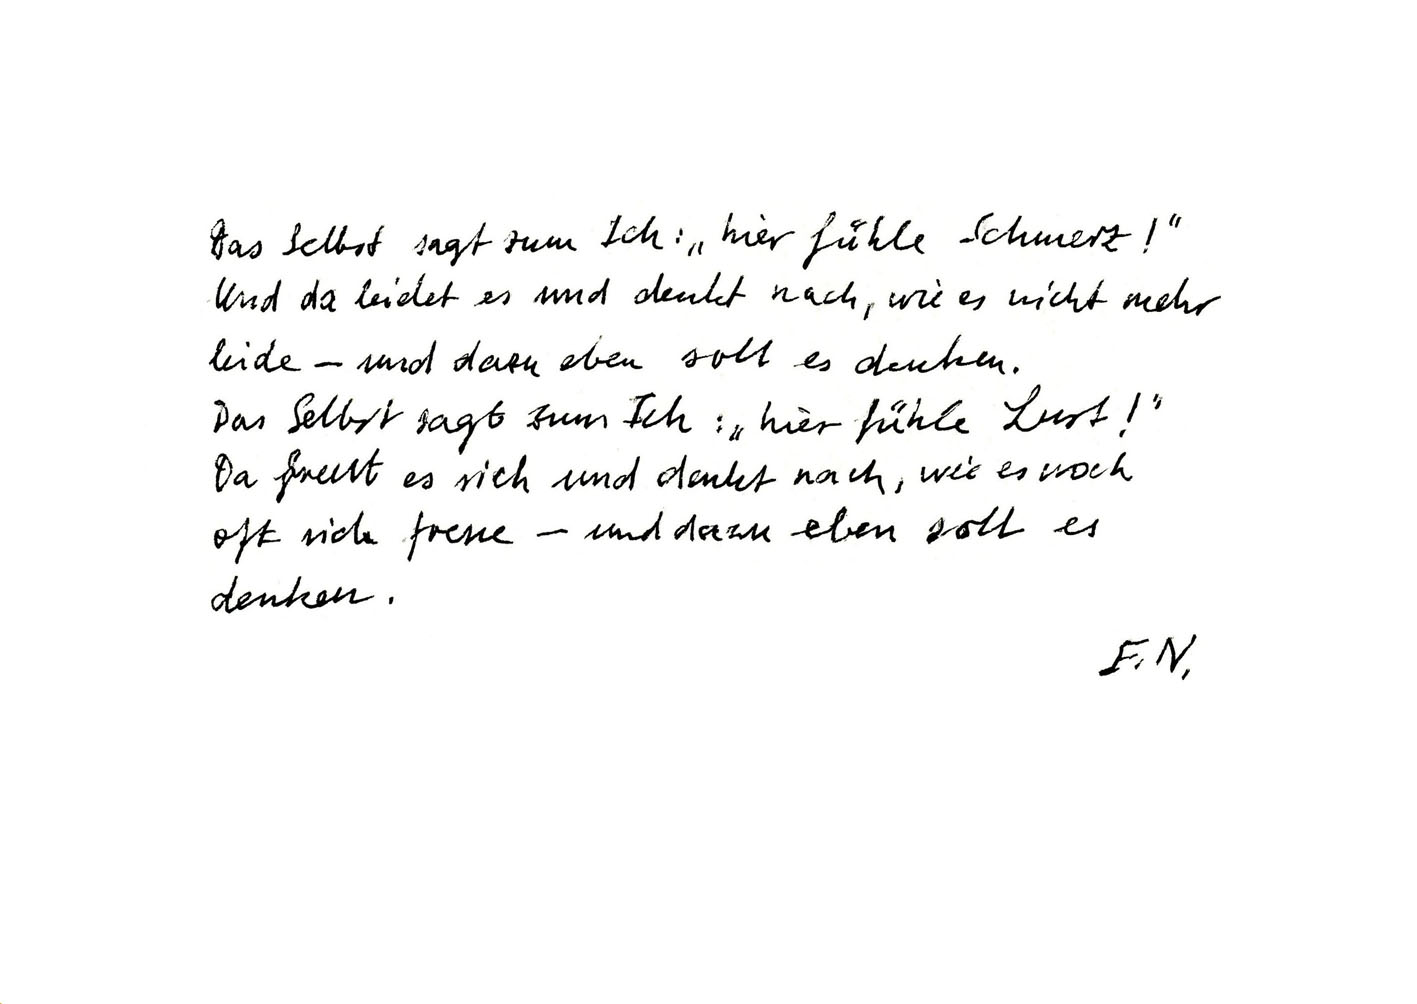 Das Selbst sagt zum Ich: „hier fühle Schmerz!“
Und da leidet es und denkt nach, wie es nicht mehr
leide – und dazu eben soll es denken.
Das Selbst sagt zum Ich: „hier fühle Lust!“
Da freut es sich und denkt nach, wie es noch
oft sich freue – und dazu eben soll es
denken.
F. N.